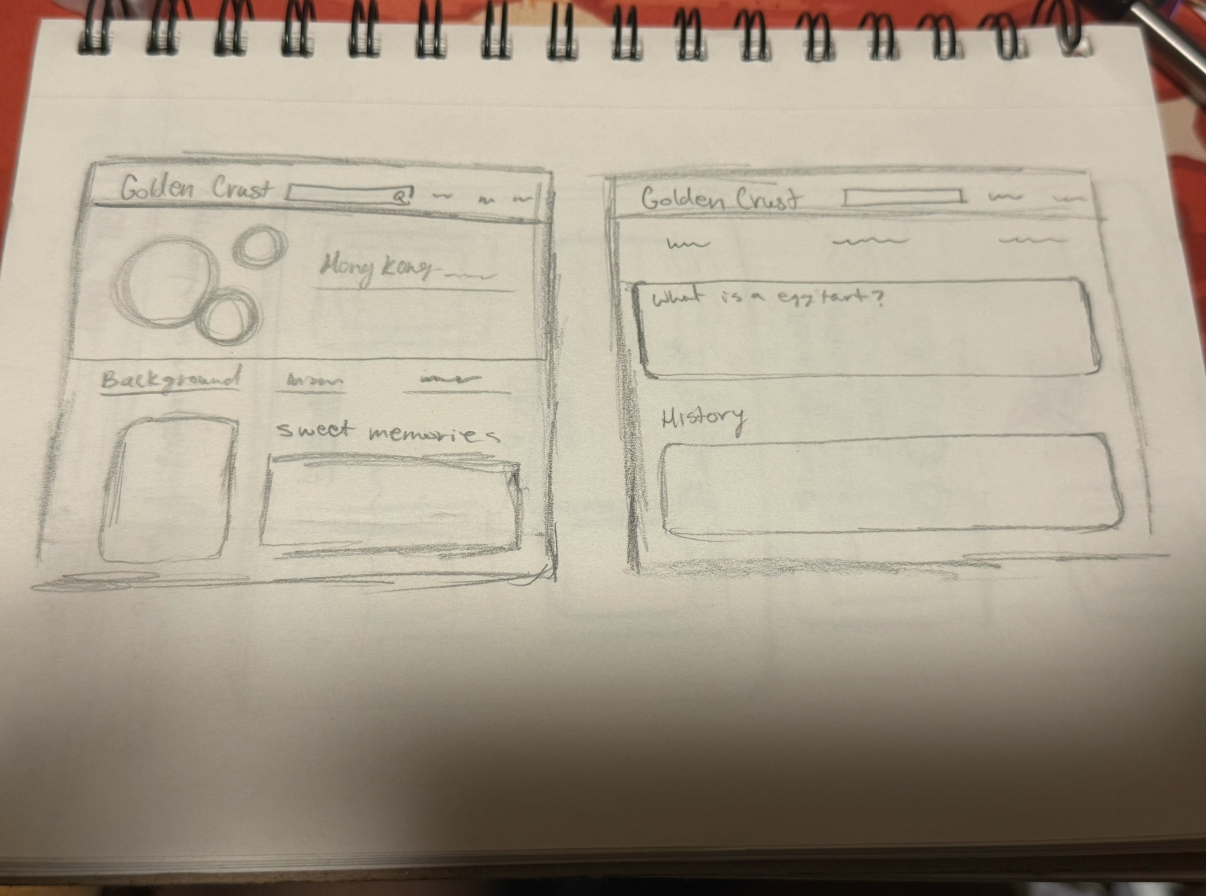 Golden Crust
Hong Kong
Background
sweet memories
Golden Crust
What is a egg tart?
History